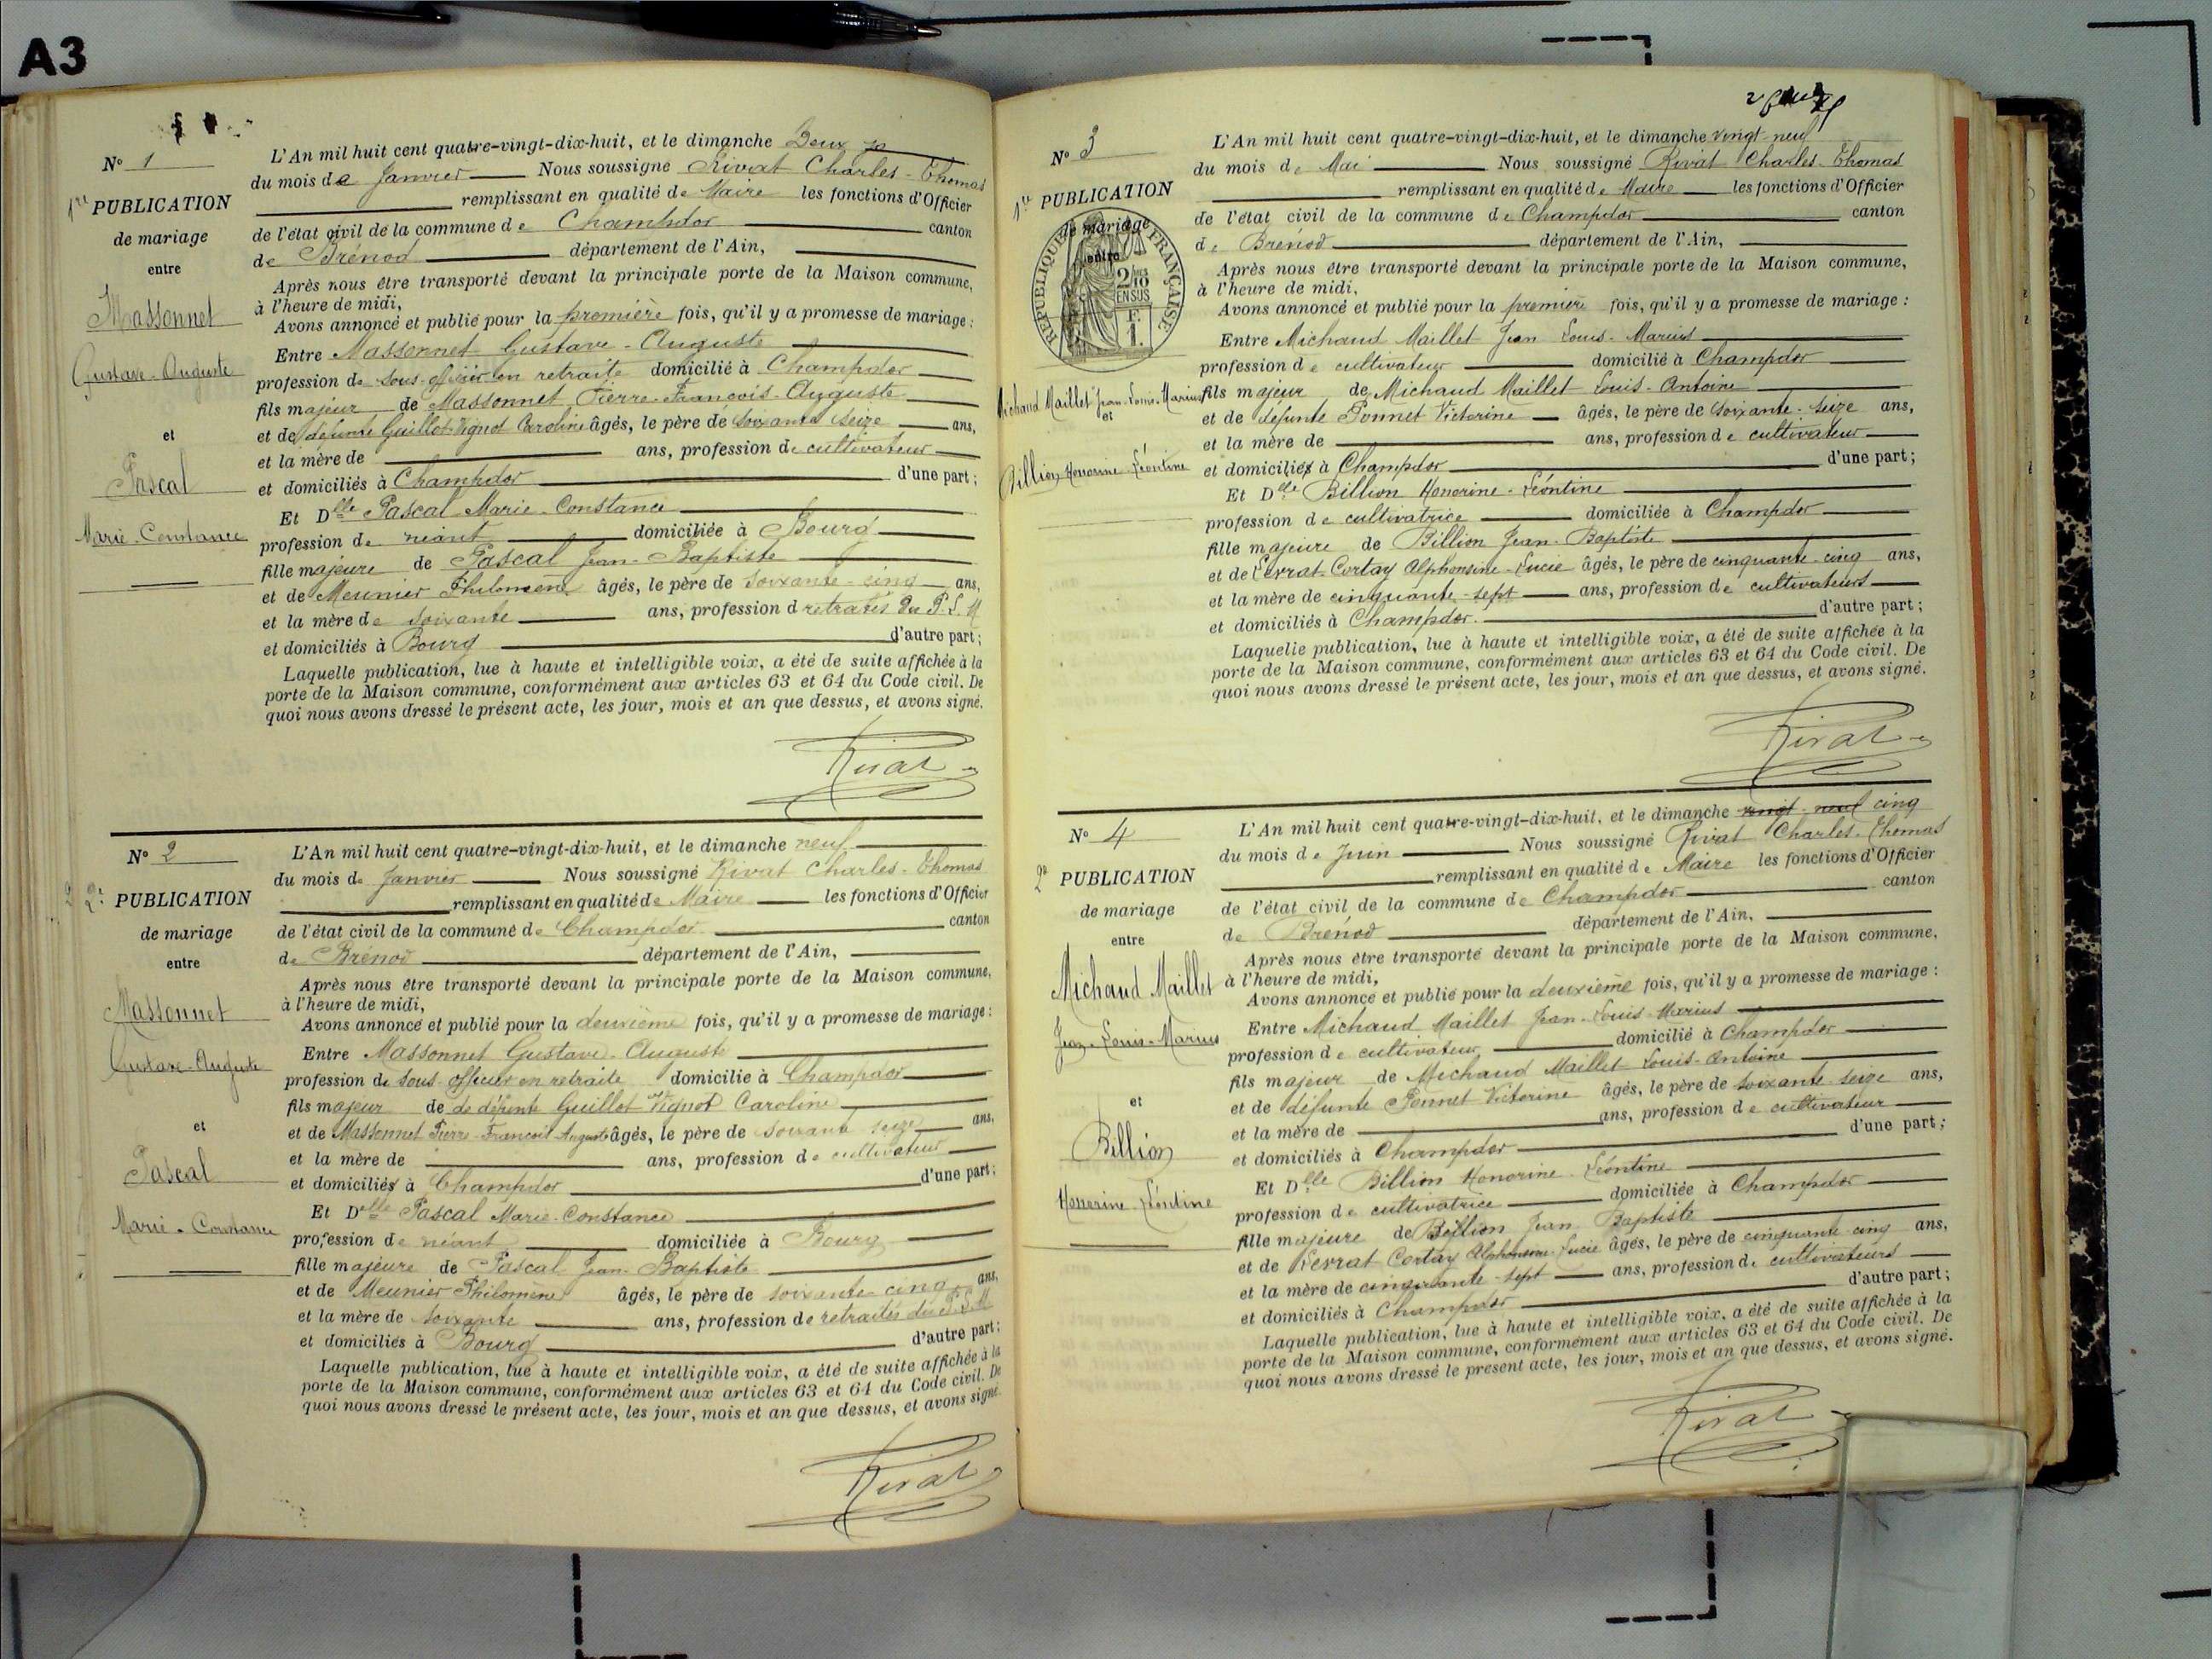 A3
N° 1
1re PUBLICATION
de mariage
entre
Massonnet
Gustave-Auguste
et
Pascal
Marie-Constance
L'An mil huit cent quatre-vingt-dix-huit, et le dimanche Deux
du mois de Janvier Nous soussigné Rivat Charles-Thomas
remplissant en qualité de Maire les fonctions d'Officier
de l'état civil de la commune de Champdor canton
de Brénod département de l'Ain,
Après nous être transporté devant la principale porte de la Maison commune,
à l'heure de midi,
Avons annoncé et publié pour la première fois, qu'il y a promesse de mariage :
Entre Massonnet Gustave-Auguste
profession de sous-officier en retraite domicilié à Champdor
fils majeur de Massonnet Pierre-François-Auguste
et de défunte Guillot-Vignot Caroline âgés, le père de soixante seize ans,
et la mère de ans, profession de cultivateur
et domiciliés à Champdor d'une part ;
Et Dlle Pascal Marie-Constance
profession de néant domiciliée à Bourg
fille majeure de Pascal Jean-Baptiste
et de Meunier Philomène âgés, le père de soixante-cinq ans,
et la mère de soixante ans, profession d retraités du P.L.M
et domiciliés à Bourg d'autre part ;
Laquelle publication, lue à haute et intelligible voix, a été de suite affichée à la
porte de la Maison commune, conformément aux articles 63 et 64 du Code civil. De
quoi nous avons dressé le présent acte, les jour, mois et an que dessus, et avons signé.
Rivat
N° 2
2e PUBLICATION
de mariage
entre
Massonnet
Gustave-Auguste
et
Pascal
Marie-Constance
L'An mil huit cent quatre-vingt-dix-huit, et le dimanche neuf
du mois de Janvier Nous soussigné Rivat Charles-Thomas
remplissant en qualité de Maire les fonctions d'Officier
de l'état civil de la commune de Champdor canton
de Brénod département de l'Ain,
Après nous être transporté devant la principale porte de la Maison commune,
à l'heure de midi,
Avons annoncé et publié pour la deuxième fois, qu'il y a promesse de mariage :
Entre Massonnet Gustave-Auguste
profession de sous-officier en retraite domicilié à Champdor
fils majeur de de défunte Guillot Vignot Caroline
et de Massonnet Pierre-François Auguste âgés, le père de soixante seize ans,
et la mère de ans, profession de cultivateur
et domiciliés à Champdor d'une part ;
Et Delle Pascal Marie-Constance
profession de néant domiciliée à Bourg
fille majeure de Pascal Jean-Baptiste
et de Meunier Philomène âgés, le père de soixante-cinq ans,
et la mère de soixante ans, profession de retraités du P.L.M
et domiciliés à Bourg d'autre part ;
Laquelle publication, lue à haute et intelligible voix, a été de suite affichée à la
porte de la Maison commune, conformément aux articles 63 et 64 du Code civil. De
quoi nous avons dressé le présent acte, les jour, mois et an que dessus, et avons signé.
Rivat
N° 3
1re PUBLICATION
de mariage
entre
RÉPUBLIQUE FRANÇAISE
2/10
EN SUS
F.
1.
Michaud Maillet Jean-Louis-Marius
et
Billion Honorine-Léontine
L'An mil huit cent quatre-vingt-dix-huit, et le dimanche vingt-neuf
du mois de Mai Nous soussigné Rivat Charles-Thomas
remplissant en qualité de Maire les fonctions d'Officier
de l'état civil de la commune de Champdor canton
de Brénod département de l'Ain,
Après nous être transporté devant la principale porte de la Maison commune,
à l'heure de midi,
Avons annoncé et publié pour la première fois, qu'il y a promesse de mariage :
Entre Michaud Maillet Jean Louis-Marius
profession de cultivateur domicilié à Champdor
fils majeur de Michaud Maillet Louis-Antoine
et de défunte Ponnet Victorine âgés, le père de soixante-seize ans,
et la mère de ans, profession de cultivateur
et domiciliés à Champdor d'une part ;
Et Dlle Billion Honorine-Léontine
profession de cultivatrice domiciliée à Champdor
fille majeure de Billion Jean-Baptiste
et de Serrat-Cortay Alphonsine-Lucie âgés, le père de cinquante-cinq ans,
et la mère de cinquante-sept ans, profession de cultivateurs
et domiciliés à Champdor. d'autre part ;
Laquelle publication, lue à haute et intelligible voix, a été de suite affichée à la
porte de la Maison commune, conformément aux articles 63 et 64 du Code civil. De
quoi nous avons dressé le présent acte, les jour, mois et an que dessus, et avons signé.
Rivat
N° 4
2e PUBLICATION
de mariage
entre
Michaud Maillet
Jean-Louis-Marius
et
Billion
Honorine-Léontine
L'An mil huit cent quatre-vingt-dix-huit, et le dimanche vingt-neuf cinq
du mois de Juin Nous soussigné Rivat Charles-Thomas
remplissant en qualité de Maire les fonctions d'Officier
de l'état civil de la commune de Champdor canton
de Brénod département de l'Ain,
Après nous être transporté devant la principale porte de la Maison commune,
à l'heure de midi,
Avons annoncé et publié pour la deuxième fois, qu'il y a promesse de mariage :
Entre Michaud Maillet Jean-Louis-Marius
profession de cultivateur domicilié à Champdor
fils majeur de Michaud Maillet Louis-Antoine
et de défunte Ponnet Victorine âgés, le père de soixante-seize ans,
et la mère de ans, profession de cultivateur
et domiciliés à Champdor d'une part ;
Et Dlle Billion Honorine-Léontine
profession de cultivatrice domiciliée à Champdor
fille majeure de Billion Jean Baptiste
et de Serrat Cortay Alphonsine-Lucie âgés, le père de cinquante-cinq ans,
et la mère de cinquante-sept ans, profession de cultivateurs
et domiciliés à Champdor d'autre part ;
Laquelle publication, lue à haute et intelligible voix, a été de suite affichée à la
porte de la Maison commune, conformément aux articles 63 et 64 du Code civil. De
quoi nous avons dressé le présent acte, les jour, mois et an que dessus, et avons signé.
Rivat